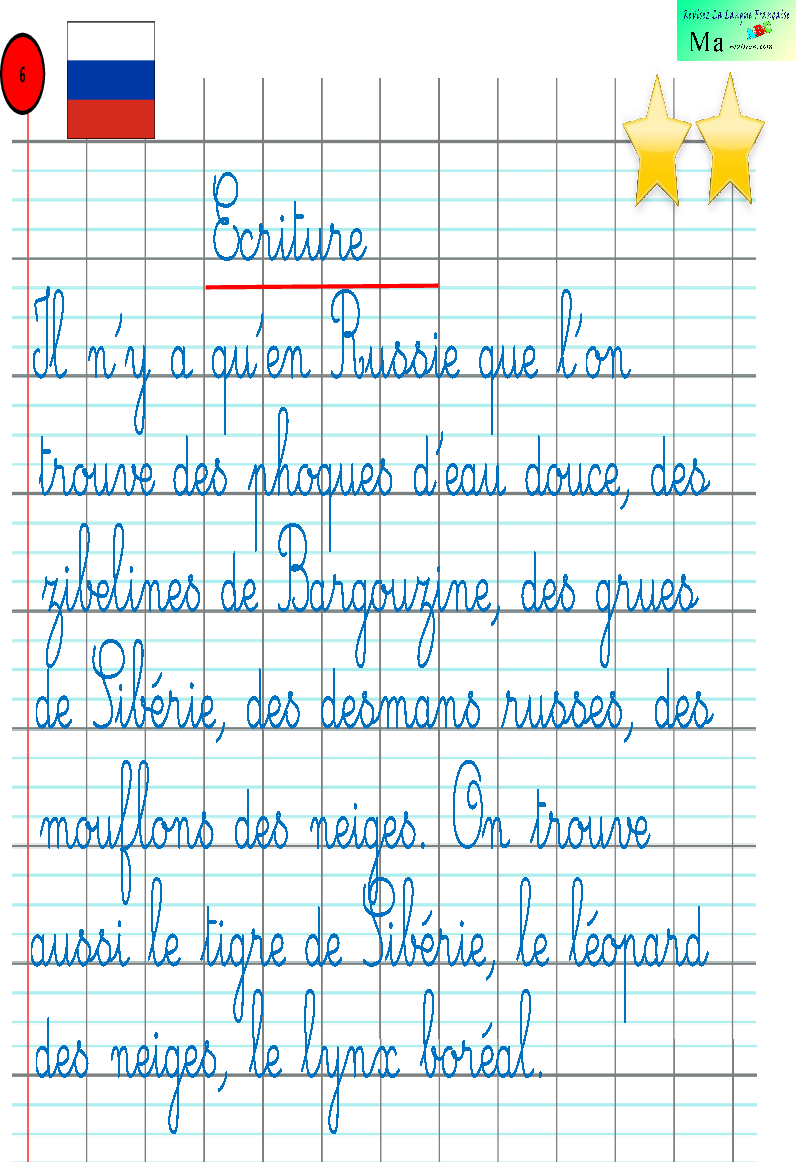 Revisez La Langue Française
Ma revision.com
6
Ecriture
Il n'y a qu'en Russie que l'on
trouve des phoques d'eau douce, des
zibelines de Bargouzine, des grues
de Sibérie, des desmans russes, des
mouflons des neiges. On trouve
aussi le tigre de Sibérie, le léopard
des neiges, le lynx boréal.